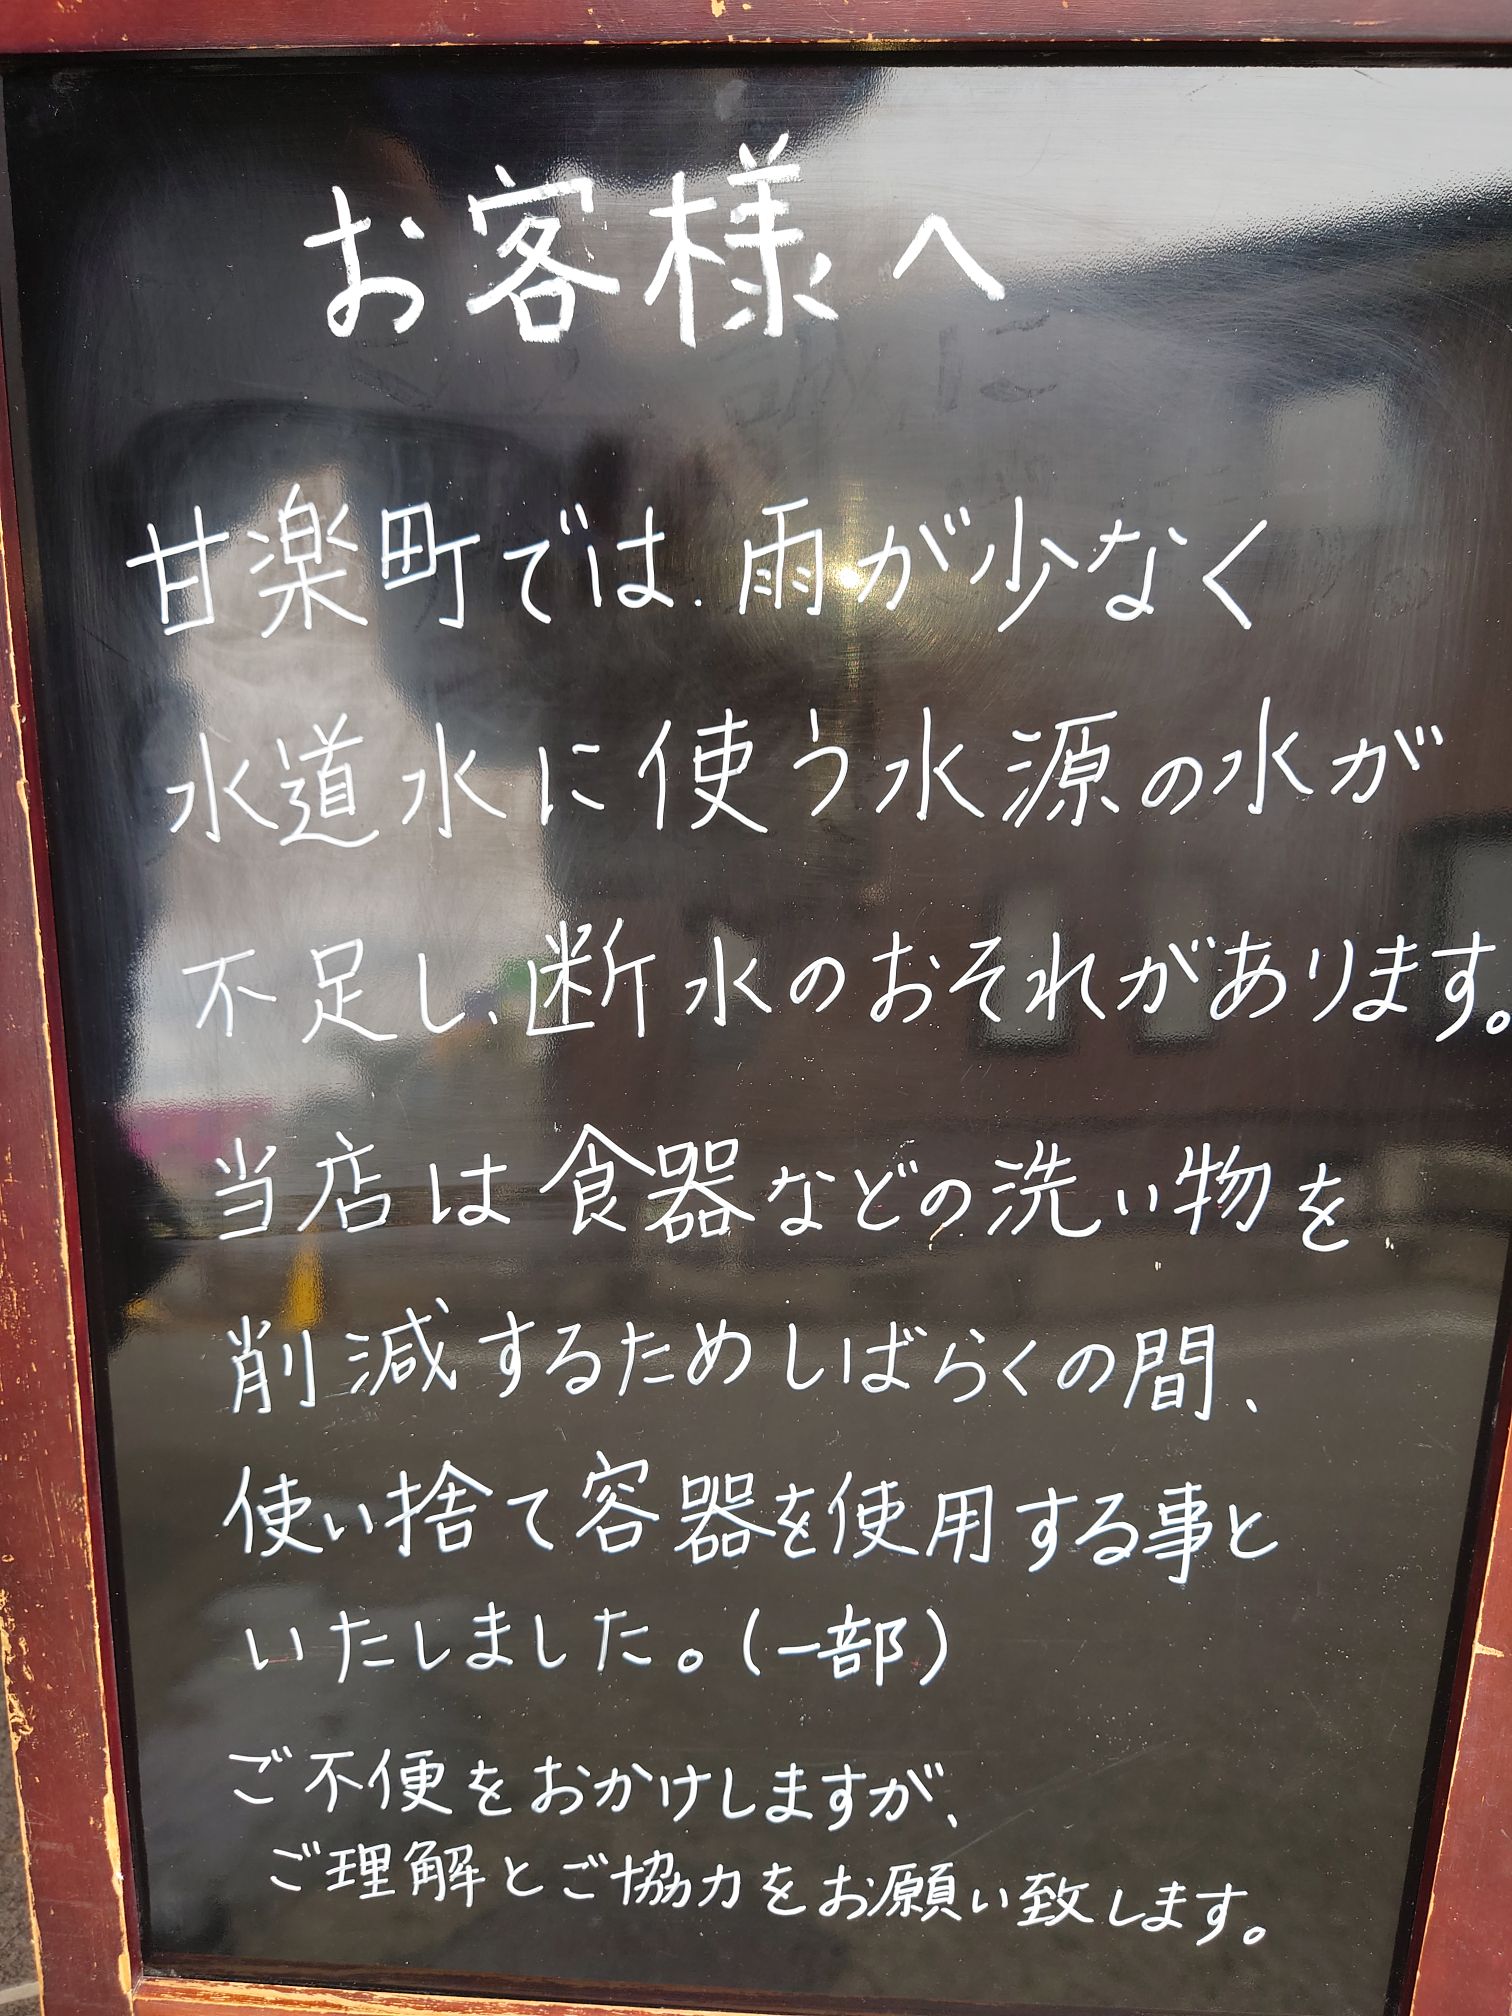 お客様へ
甘楽町では、雨が少なく
水道水に使う水源の水が
不足し、断水のおそれがあります。
当店は食器などの洗い物を
削減するためしばらくの間、
使い捨て容器を使用する事と
いたしました。(一部)
ご不便をおかけしますが、
ご理解とご協力をお願い致します。